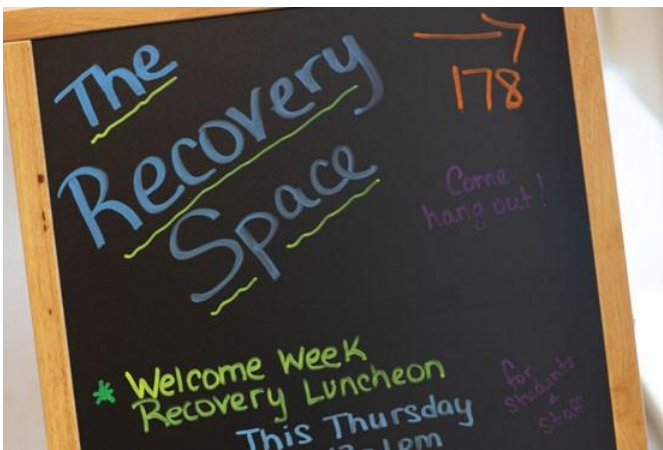 The
Recovery
Space
→
178
Come
hang out!
* Welcome Week
Recovery Luncheon
This Thursday
1pm
for
students
&
staff